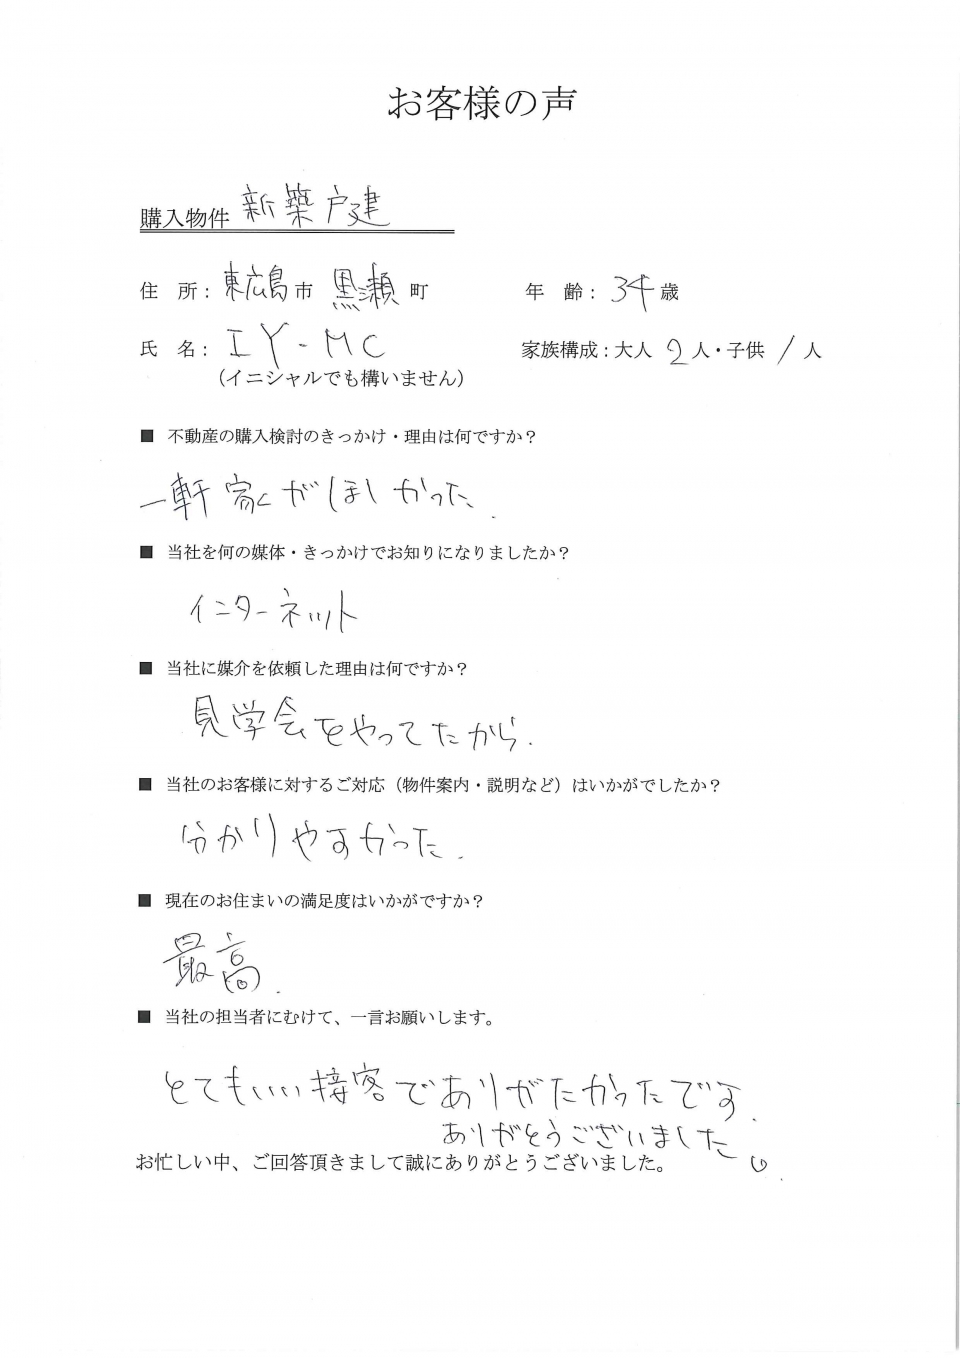 お客様の声
購入物件 新築戸建
住 所：東広島市 黒瀬町 年 齢：34歳
氏 名：IY-MC 家族構成：大人 2人・子供 1人
（イニシャルでも構いません）
■ 不動産の購入検討のきっかけ・理由は何ですか？
一軒家がほしかった.
■ 当社を何の媒体・きっかけでお知りになりましたか？
インターネット
■ 当社に媒介を依頼した理由は何ですか？
見学会をやってたから.
■ 当社のお客様に対するご対応（物件案内・説明など）はいかがでしたか？
分かりやすかった.
■ 現在のお住まいの満足度はいかがですか？
最高.
■ 当社の担当者にむけて、一言お願いします。
とてもいい接客でありがたかったです.
ありがとうございました。
お忙しい中、ご回答頂きまして誠にありがとうございました。